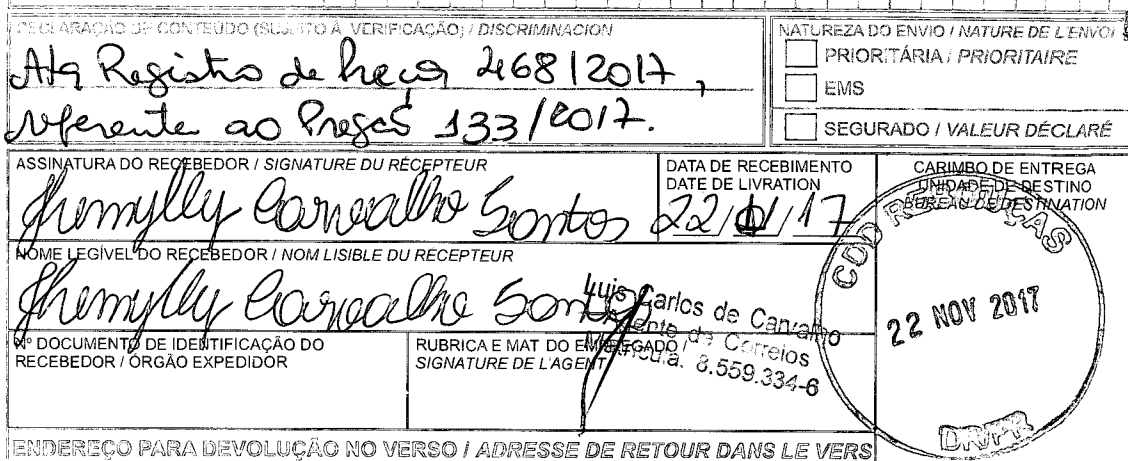 DECLARAÇÃO DE CONTEÚDO (SUJEITO À VERIFICAÇÃO) / DISCRIMINACION
Ata Registro de Preços 468/2017,
referente ao Pregão 133/2017.
NATUREZA DO ENVIO / NATURE DE L'ENVOI
PRIORITÁRIA / PRIORITAIRE
EMS
SEGURADO / VALEUR DÉCLARÉ
ASSINATURA DO RECEBEDOR / SIGNATURE DU RÉCEPTEUR
Jhemylly Carvalho Santos
DATA DE RECEBIMENTO
DATE DE LIVRATION
22/11/17
CARIMBO DE ENTREGA
UNIDADE DE DESTINO
BUREAU DE DESTINATION
NOME LEGÍVEL DO RECEBEDOR / NOM LISIBLE DU RECEPTEUR
Jhemylly Carvalho Santos
Nº DOCUMENTO DE IDENTIFICAÇÃO DO
RECEBEDOR / ÓRGÃO EXPEDIDOR
RUBRICA E MAT DO EMPREGADO /
SIGNATURE DE L'AGENT
Luis Carlos de Carvalho
Agente de Correios
Matrícula. 8.559.334-6
CDD REBOUÇAS
22 NOV 2017
DR/PR
ENDEREÇO PARA DEVOLUÇÃO NO VERSO / ADRESSE DE RETOUR DANS LE VERS